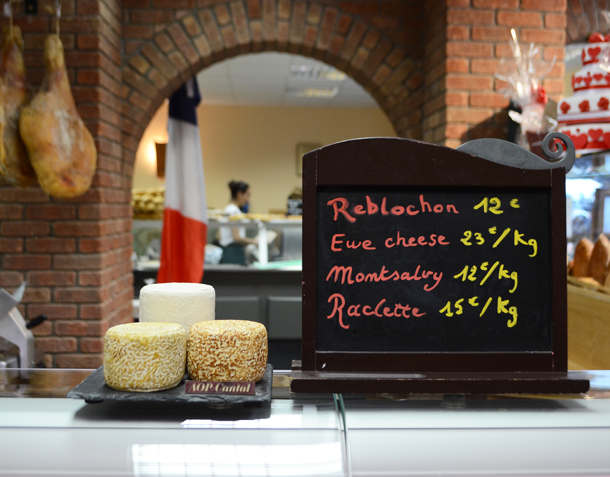 Reblochon 12 €
Ewe cheese 23€/kg
Montsalvy 12€/kg
Raclette 15€/kg
AOP Cantal